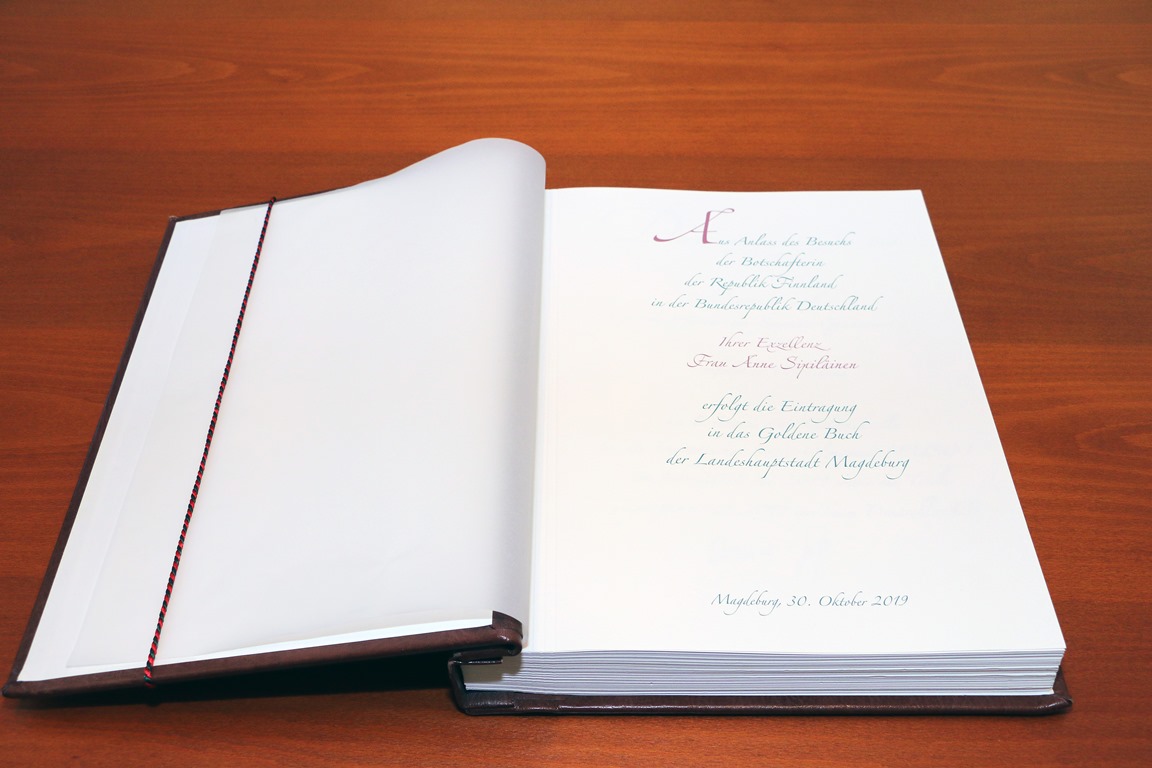 Aus Anlass des Besuchs
der Botschafterin
der Republik Finnland
in der Bundesrepublik Deutschland
Ihrer Exzellenz
Frau Anne Sipiläinen
erfolgt die Eintragung
in das Goldene Buch
der Landeshauptstadt Magdeburg
Magdeburg, 30. Oktober 2019